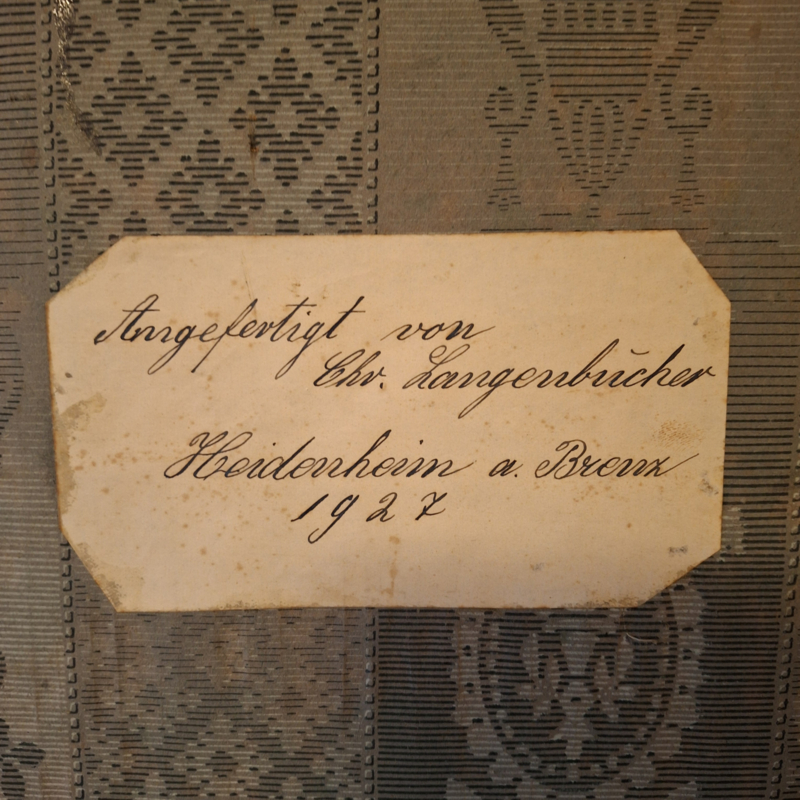 Angefertigt von
Chr. Langenbucher
Heidenheim a. Brenz
1927